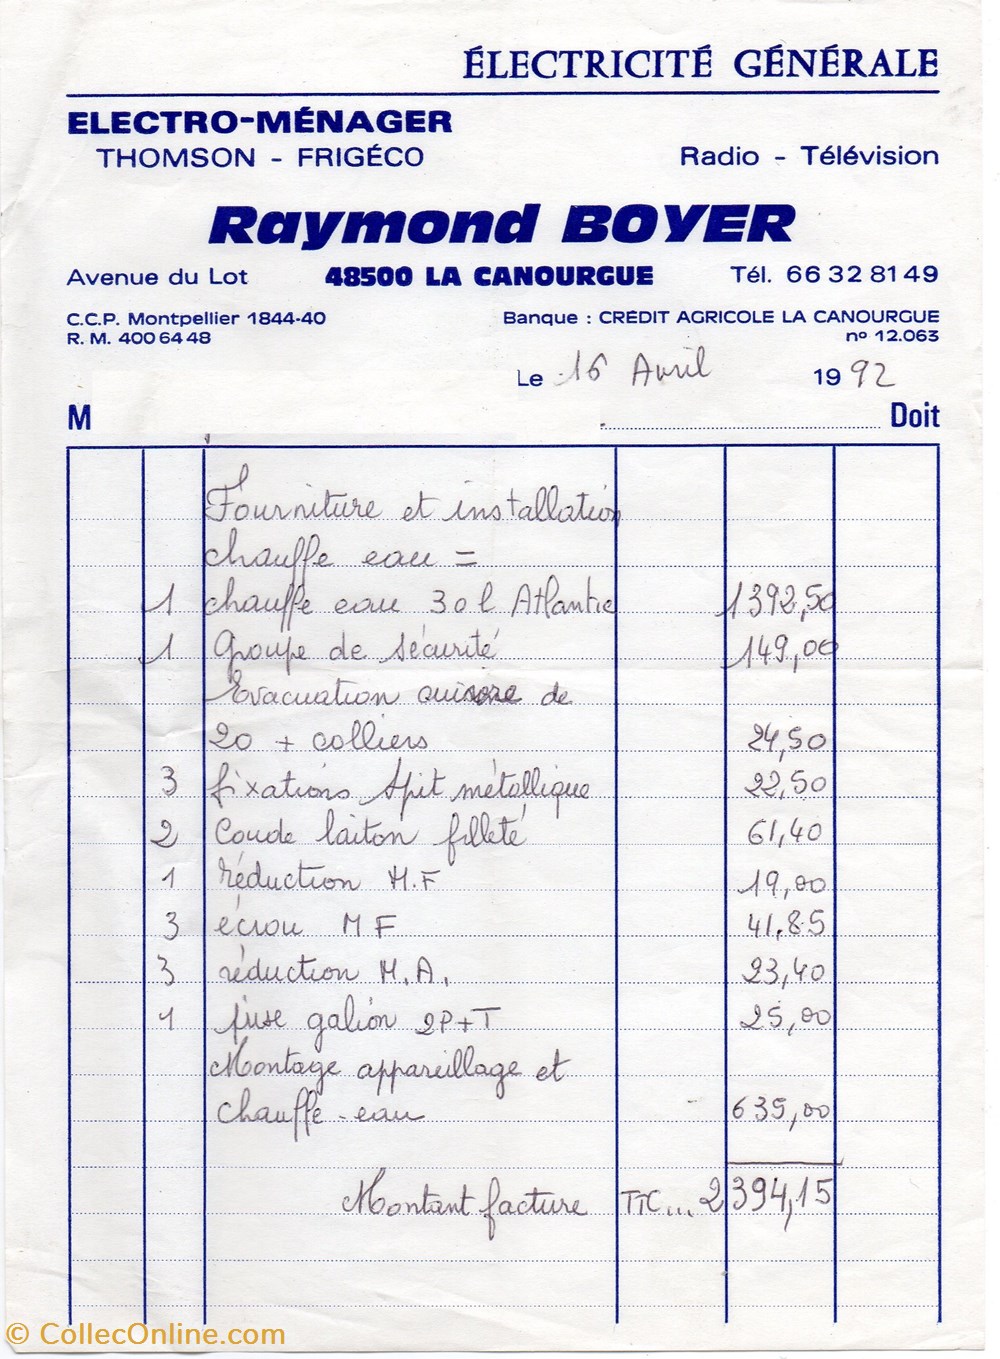 ÉLECTRICITÉ GÉNÉRALE
ELECTRO-MÉNAGER
THOMSON - FRIGÉCO
Radio - Télévision
Raymond BOYER
Avenue du Lot 48500 LA CANOURGUE Tél. 66 32 81 49
C.C.P. Montpellier 1844-40 Banque : CRÉDIT AGRICOLE LA CANOURGUE
R. M. 400 64 48 nº 12.063
Le 16 Avril 1992
M Doit
Fourniture et installation
chauffe eau =
1 chauffe eau 30 l Atlantic 1392,50
1 Groupe de sécurité 149,00
Evacuation de
20 + colliers 24,50
3 fixations Spit métallique 22,50
2 Coude laiton filleté 61,40
1 réduction M.F 19,00
3 écrou M F 41.85
3 réduction M.A. 23,40
1 galion 2P+T 25,00
Montage appareillage et
chauffe-eau 635,00
Montant facture TTC... 2394,15
© CollecOnline.com